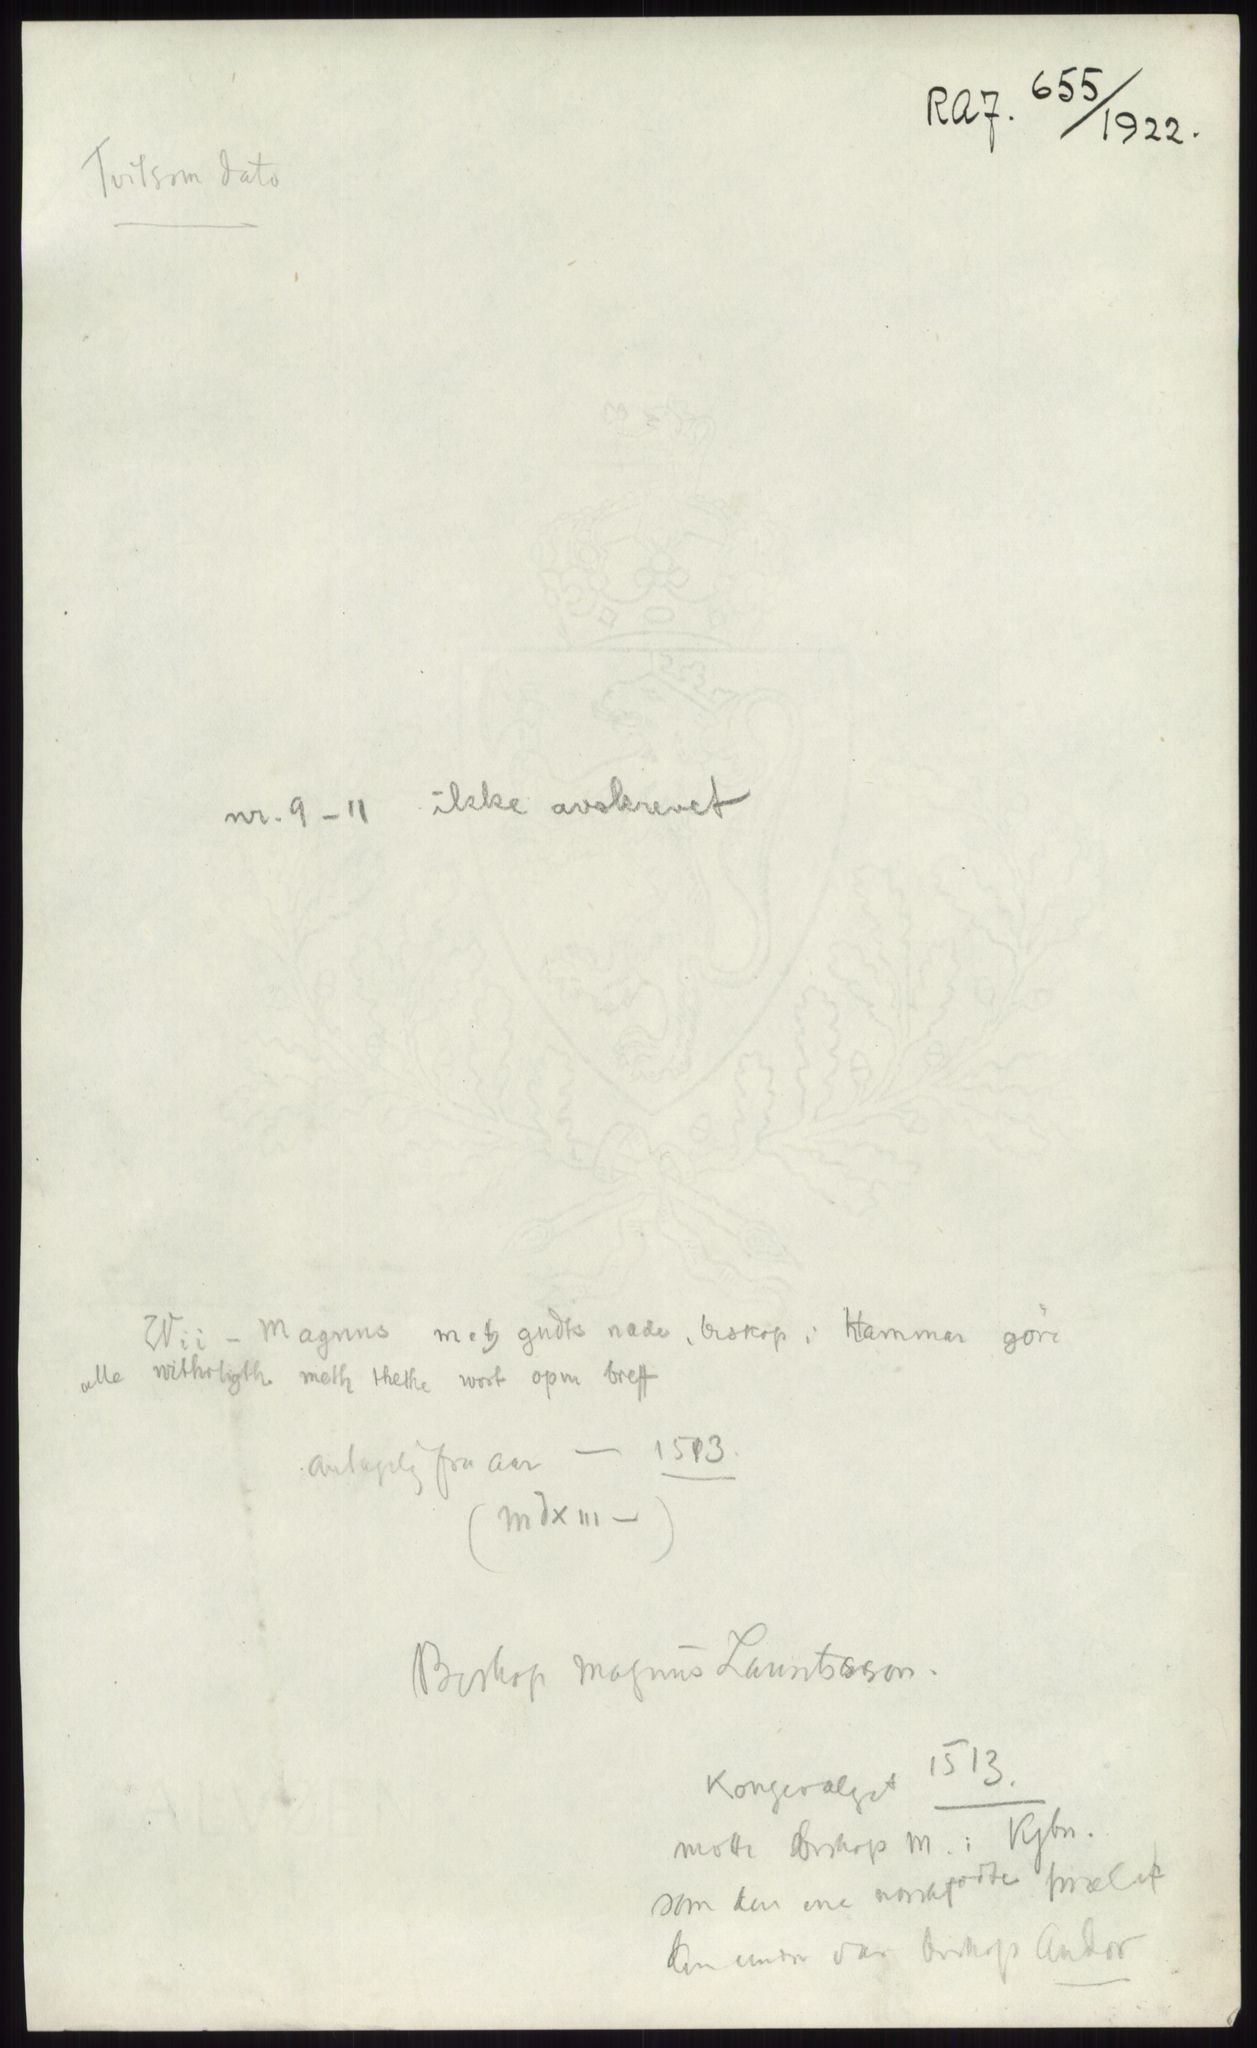 RA7. 655/1922.
Tvilsom dato
nr. 9-11 ikke avskrevet
Wii - Magnus metz gudts nade, biskop i Hammar göre
alle witherligth meth thethe wort open breff
antagelig fra aar — 1513.
(MdXIII —)
Biskop Magnus Lauritsson.
Kongevalget 1513.
møtte biskop M. i Kjbn.
som den ene norskfødte prælat
den anden var biskop Andor